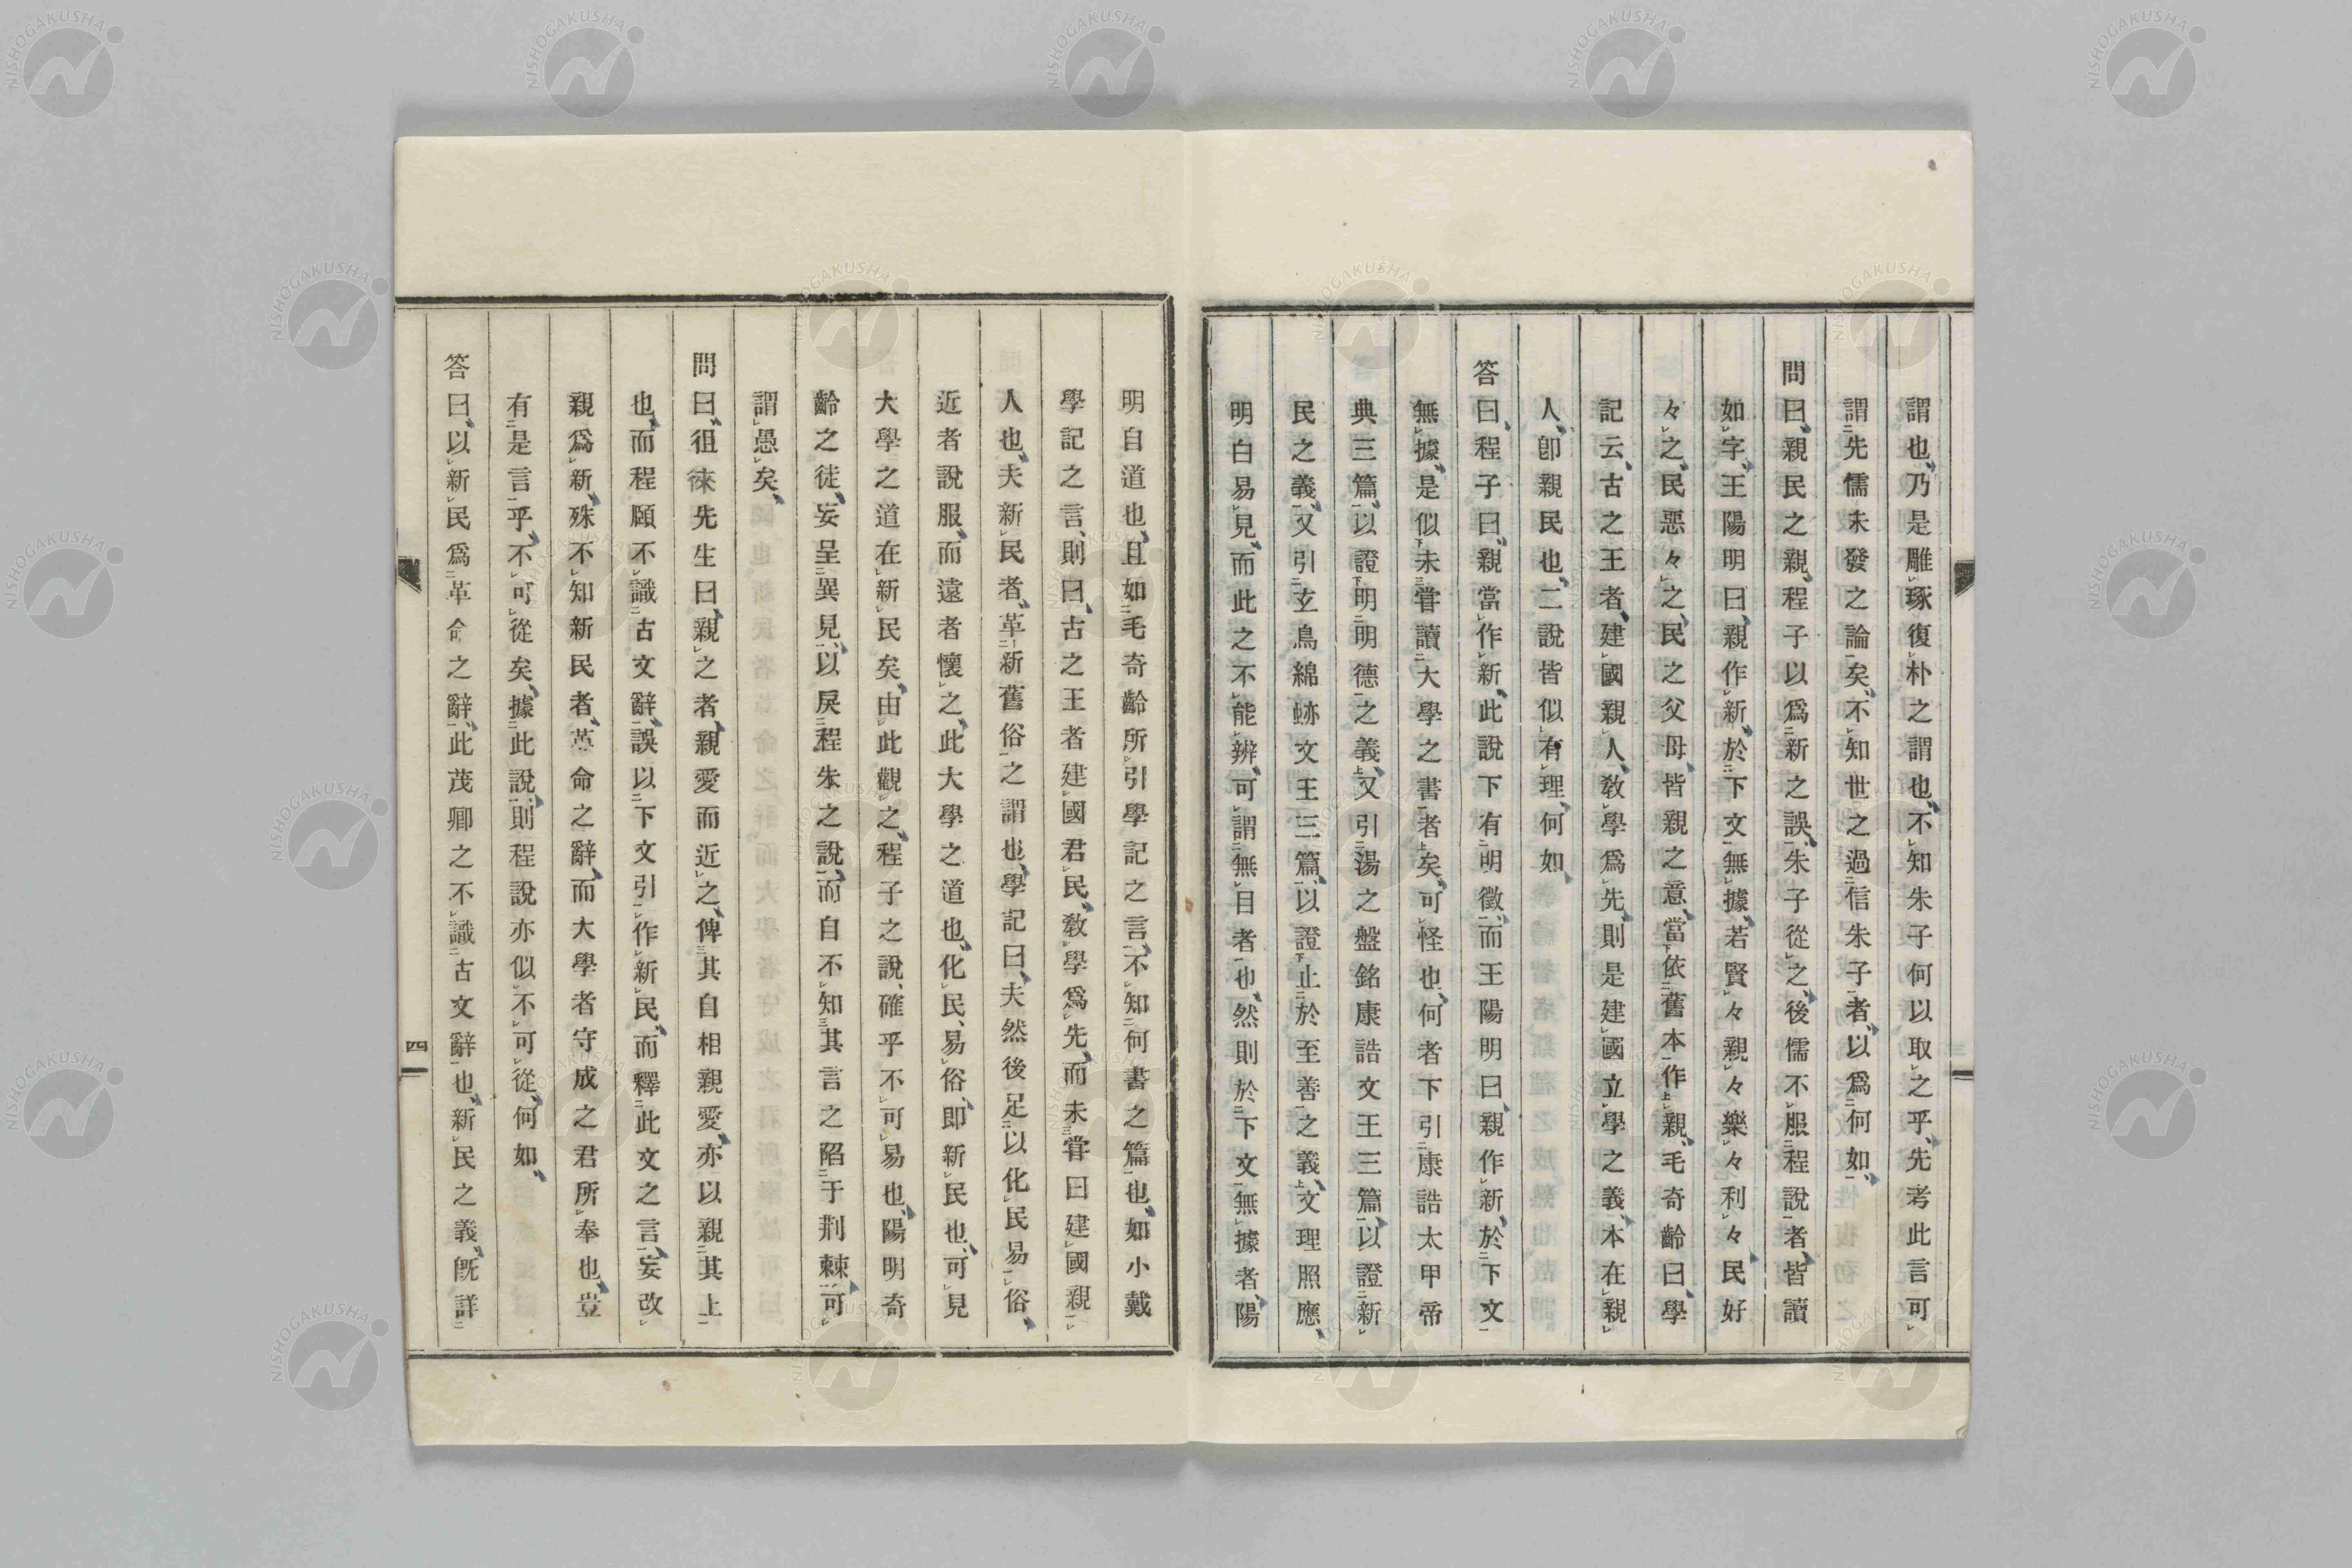 謂也、乃是雕琢復朴之謂也、不知朱子何以取之乎、先考此言可
謂先儒未發之論矣、不知世之過信朱子者、以爲何如、
問曰、親民之親、程子以爲新之誤、朱子從之、後儒不服程說者、皆讀
如字、王陽明曰、親作新、於下文無據、若賢々親々樂々利々、民好
々之、民惡々之、民之父母、皆親之意、當依舊本作親、毛奇齡曰、學
記云、古之王者、建國親人、敎學爲先、則是建國立學之義、本在親
人、卽親民也、二說皆似有理、何如、
答曰、程子曰、親當作新、此說下有明徵、而王陽明曰、親作新、於下文
無據、是似未甞讀大學之書者矣、可怪也、何者下引康誥太甲帝
典三篇、以證明明德之義、又引湯之盤銘康誥文王三篇、以證新
民之義、又引玄鳥綿蠻文王三篇、以證止於至善之義、文理照應、
明白易見、而此之不能辨、可謂無目者也、然則於下文無據者、陽
明自道也、且如毛奇齡所引學記之言、不知何書之篇也、如小戴
學記之言、則曰、古之王者建國君民、敎學爲先、而未甞曰建國親
人也、夫新民者、革新舊俗之謂也、學記曰、夫然後足以化民易俗、
近者說服、而遠者懷之、此大學之道也、化民、易俗、即新民也、可見
大學之道在新民矣、由此觀之、程子之說、確乎不可易也、陽明奇
齡之徒、妄呈異見、以戾程朱之說、而自不知其言之陷于荆棘、可
謂愚矣、
問曰、徂徠先生曰、親之者、親愛而近之、俾其自相親愛、亦以親其上
也、而程頤不識古文辭、誤以下文引作新民、而釋此文之言、妄改
親爲新、殊不知新民者、革命之辭、而大學者守成之君所奉也、豈
有是言乎、不可從矣、據此說、則程說亦似不可從、何如、
答曰、以新民爲革命之辭、此茂卿之不識古文辭也、新民之義、既詳
四